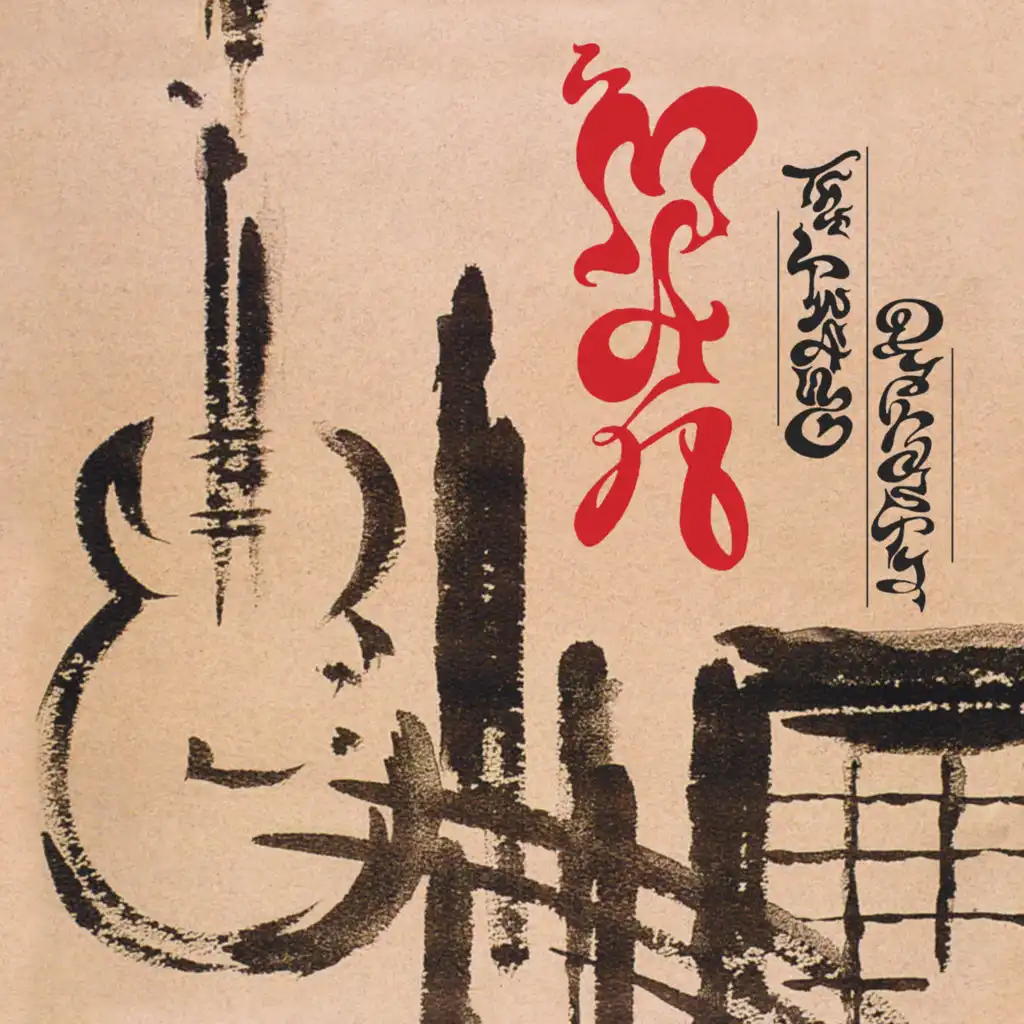 MAN
THE TWANG
DYNASTY